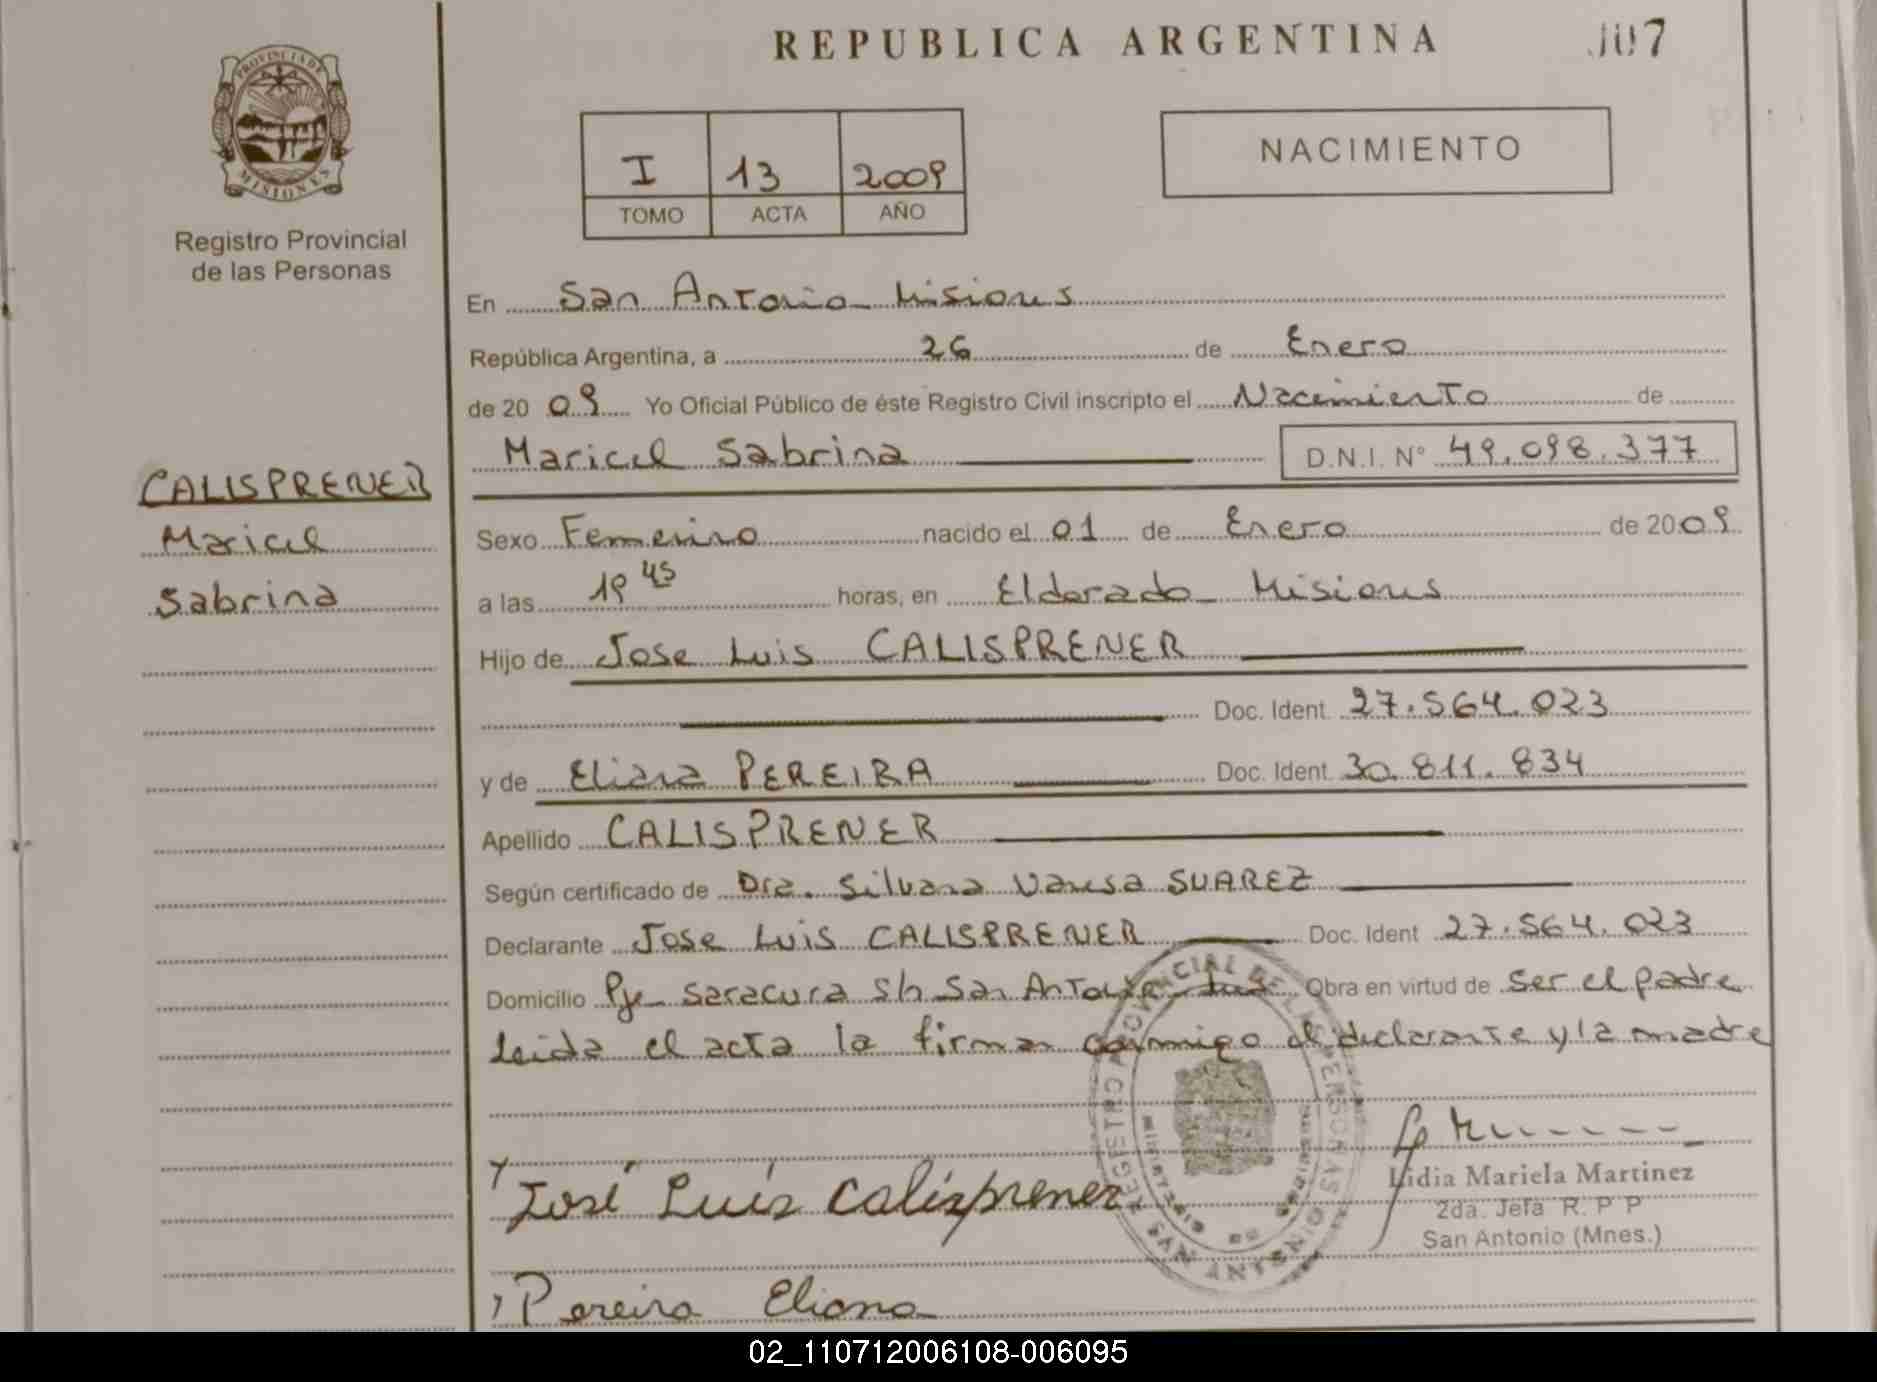 REPUBLICA ARGENTINA
107
PROVINCIA DE MISIONES
Registro Provincial
de las Personas
I 13 2009
TOMO ACTA AÑO
NACIMIENTO
En San Antonio - Misiones
República Argentina, a 26 de Enero
de 20 09 Yo Oficial Público de éste Registro Civil inscripto el Nacimiento de
Maricel Sabrina D.N.I. N° 49.098.377
CALISPRENER
Maricel
Sabrina
Sexo Femenino nacido el 01 de Enero de 2009
a las 19 45 horas, en Eldorado - Misiones
Hijo de Jose Luis CALISPRENER
Doc. Ident. 27.564.023
y de Eliana PEREIRA Doc. Ident. 30.811.834
Apellido CALISPRENER
Según certificado de Dra. Silvana Vanesa SUAREZ
Declarante Jose Luis CALISPRENER Doc. Ident 27.564.023
Domicilio Pje Saracura s/n San Antonio Obra en virtud de ser el padre
Leida el acta la firman conmigo el declarante y la madre
José Luis Calisprener
Lidia Mariela Martinez
2da. Jefa R. P P
San Antonio (Mnes.)
Pereira Eliana
02_110712006108-006095